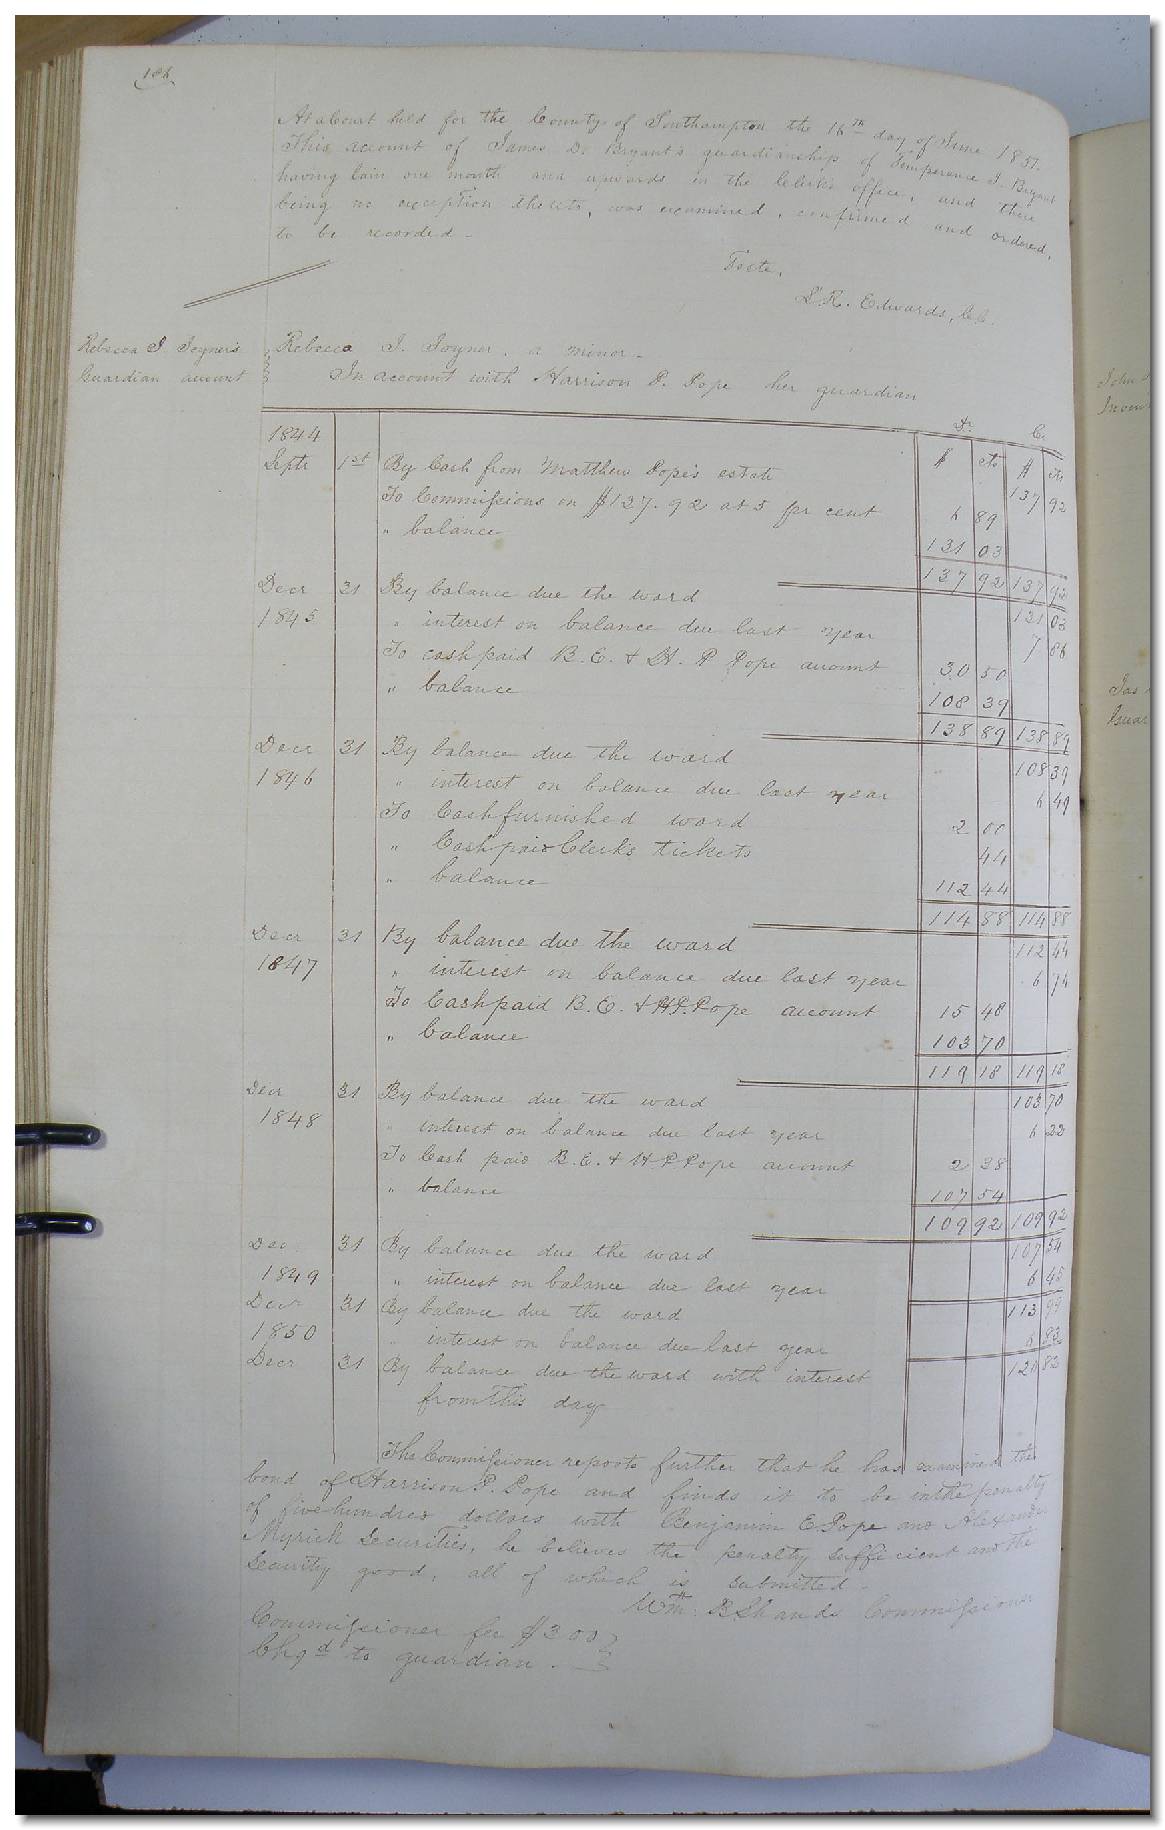 186
At a Court held for the County of Southampton the 16th day of June 1851.
This account of James D. Bryant's guardianship of Temperance J. Bryant
having lain one month and upwards in the Clerk's office, and there
being no exception thereto, was examined, confirmed and ordered,
to be recorded -
Teste,
L R. Edwards, C.C.
Rebecca J Joyner's
Guardian account
Rebecca J. Joyner, a minor -
In account with Harrison P. Pope her guardian
Dr. Cr.
1844 $ cts $ cts
Septr 1st By Cash from Matthew Pope's estate 137 92
To Commissions on $137.92 at 5 pr cent 6 89
" balance 131 03
137 92 137 92
Decr 31 By balance due the ward 131 03
1845 " interest on balance due last year 7 86
To cash paid B. E. & H. P Pope account 30 50
" balance 108 39
138 89 138 89
Decr 31 By balance due the ward 108 39
1846 " interest on balance due last year 6 49
To Cash furnished ward 2 00
" Cash paid Clerks tickets 44
" balance 112 44
114 88 114 88
Decr 31 By balance due the ward 112 44
1847 " interest on balance due last year 6 74
To Cash paid B. E. & H P. Pope account 15 48
" balance 103 70
119 18 119 18
Decr 31 By balance due the ward 103 70
1848 " interest on balance due last year 6 22
To Cash paid B. E. & H P Pope account 2 38
" balance 107 54
109 92 109 92
Dec 31 By balance due the ward 107 54
1849 " interest on balance due last year 6 45
Decr 31 By balance due the ward 113 99
1850 " interest on balance due last year 6 83
Decr 31 By balance due the ward with interest 120 82
from this day
The Commissioner reports further that he has examined the
bond of Harrison P. Pope and finds it to be in the penalty
of five hundred dollars with Benjamin E Pope and Alexander
Myrick Securities, he believes the penalty sufficient and the
Security good, all of which is submitted -
Wm. B Shands Commissioner
Commissioner fee $3 00
Chgd to guardian.
John
Inven
Jas
Guar